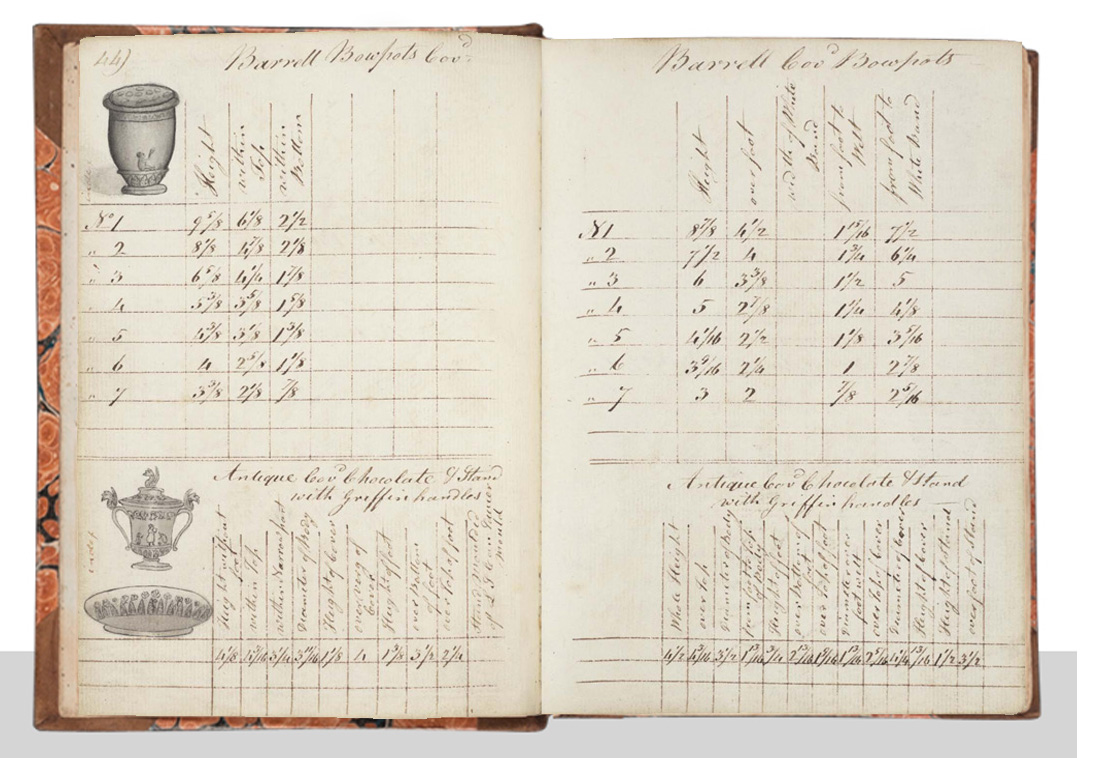 44)
Barrell Bowpots Cov.d
Height
within Top
within Bottom
No 1 9 5/8 6 1/8 2 1/2
" 2 8 1/8 4 7/8 2 1/8
" 3 6 5/8 4 1/4 1 7/8
" 4 5 3/8 3 5/8 1 5/8
" 5 4 3/8 3 1/8 1 3/8
" 6 4 2 5/8 1 1/8
" 7 3 3/8 2 1/8 7/8
Antique Cov.d Chocolate & Stand
with Griffin handles
Height without
foot
within Top
within
Diameter of Body
Height of Cover
over verg of
Cover
Heigt of foot
over Bottom
of foot
over Top of foot
Stand moulded
mould
4 1/8 4 3/16 3 1/4 3 9/16 1 1/8 4 1 3/8 3 1/2 2 1/4
Barrell Cov.d Bowpots
Height
over foot
width of White
Band
from foot to
Welt
from foot to
White Band
No 1 8 7/8 4 1/2 1 15/16 7 1/2
" 2 7 1/2 4 1 3/4 6 1/4
" 3 6 3 3/8 1 1/2 5
" 4 5 2 7/8 1 1/4 4 1/8
" 5 4 1/16 2 1/2 1 1/8 3 5/16
" 6 3 9/16 2 1/4 1 2 7/8
" 7 3 2 7/8 2 5/16
Antique Cov.d Chocolate & Stand
with Griffin handles
Whole Height
over Top
Diameter of Body
from foot to Top
of Body
Height of foot
over Bottom of
foot
over Top of foot
Diameter over
foot welt
over Top of Cover
Diameter of Cover
Height of Cover
Height of Stand
over foot of Stand
4 1/2 3 1/2 3/4 1 1/2 3 1/2